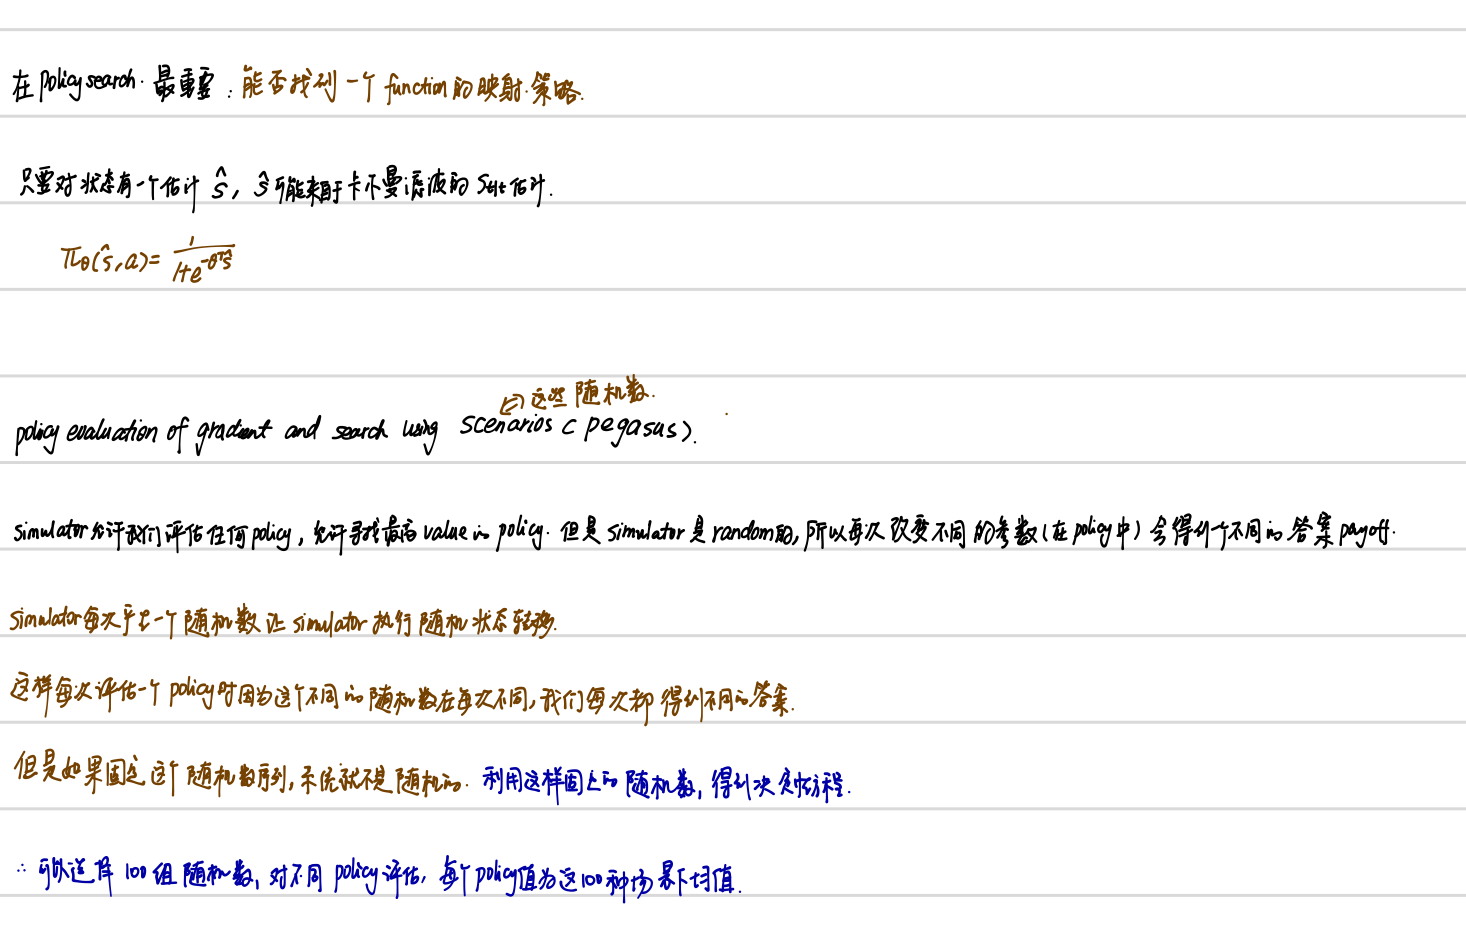 在 policy search. 最重要：能否找到一个 function的映射.策略.
只要对状态有一个估计 ŝ, ŝ可能来自于卡尔曼滤波的 St|t 估计.
πθ(ŝ,a)= 1/(1+e^(-θᵀŝ))
这些随机数.
policy evaluation of gradient and search using scenarios ( pegasus ).
simulator允许我们评估任何policy, 允许寻找最高value的policy. 但是simulator是random的,所以每次改变不同的参数(在policy中)会得到一个不同的答案payoff.
simulator每次产生一个随机数让simulator执行随机状态转移.
这样每次评估一个policy时因为这个不同的随机数在每次不同,我们每次都得到不同的答案.
但是如果固定这个随机数序列,系统就不是随机的. 利用这样固定的随机数,得到决定性方程.
∴ 可以选择 100 组随机数, 对不同 policy评估, 每个policy值为这100种场景下均值.